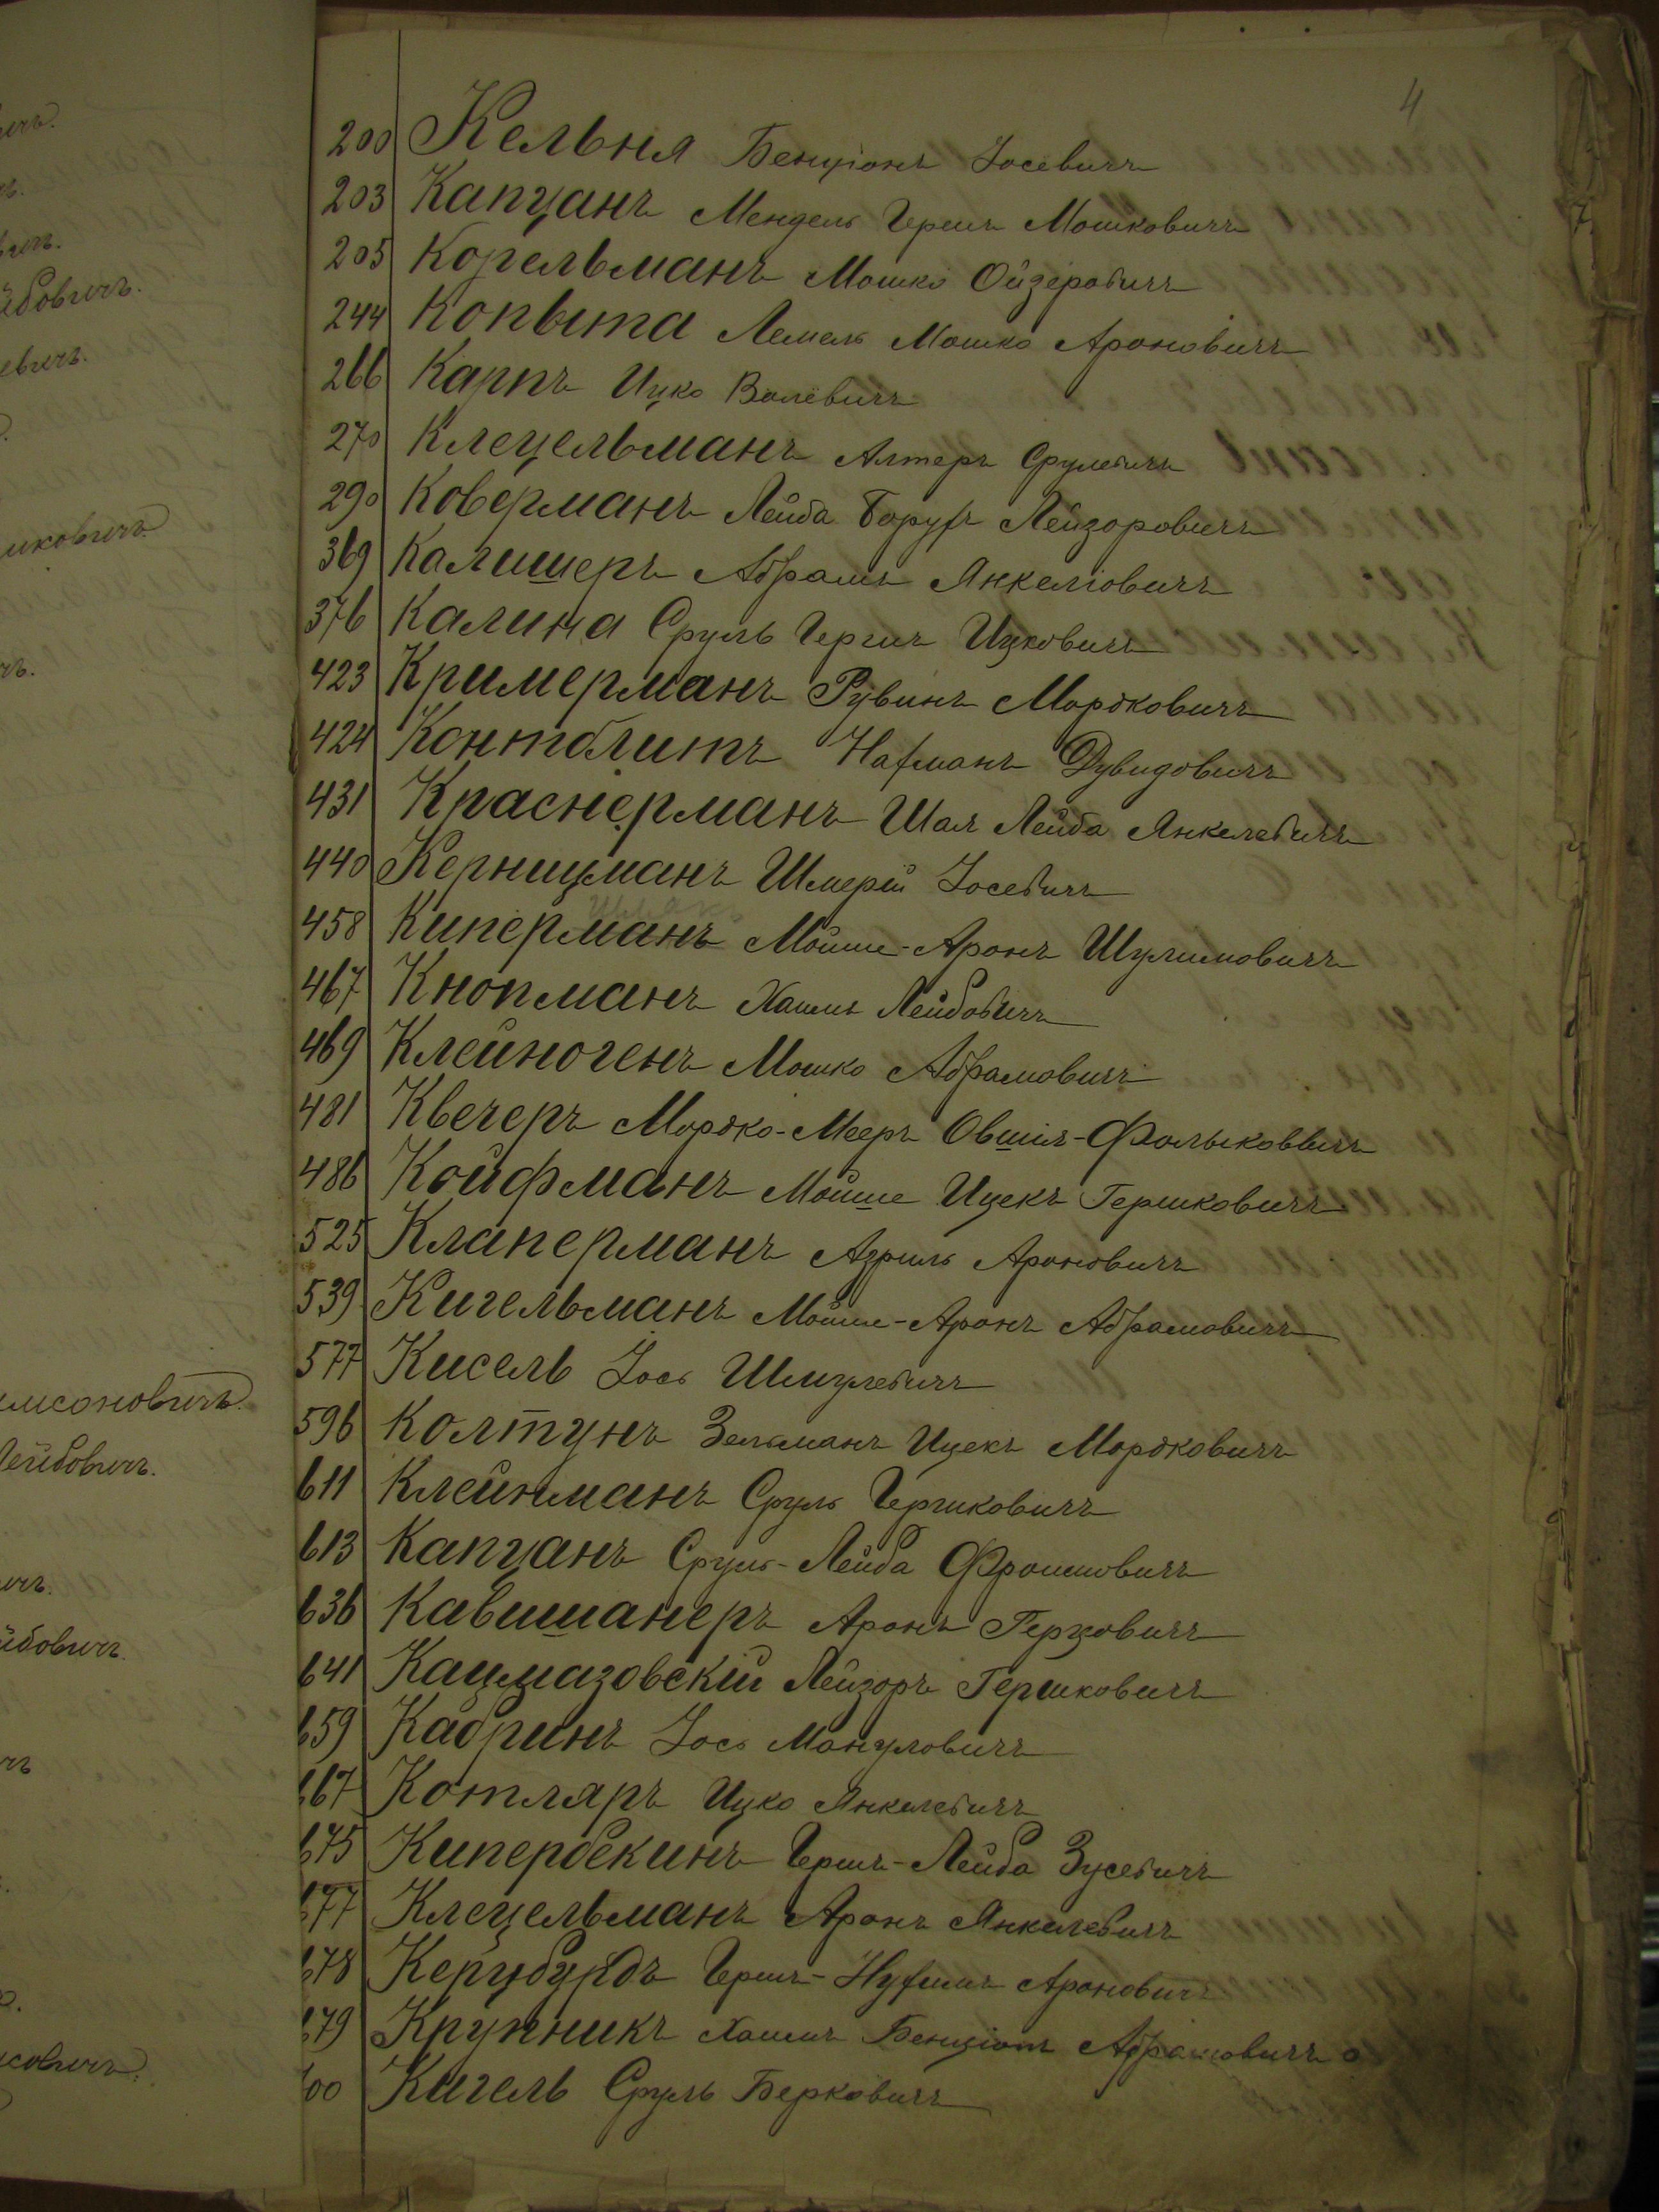 4
200 Кельня Бенціонъ Іосевичъ
203 Капцанъ Мендель Гершъ Мошковичъ
205 Копельманъ Мошко Ойзеровичъ
244 Копыта Лемель Мошко Ароновичъ
266 Карпъ Ицко Волевичъ
270 Клецельманъ Алтеръ Срулевичъ
290 Коверманъ Лейба Борухъ Лейзоровичъ
369 Калишеръ Абрамъ Янкеліовичъ
376 Калина Сруль Гершъ Ицковичъ
423 Кримерманъ Рувинъ Мордковичъ
424 Контблитъ Нахманъ Дувидовичъ
431 Краснерманъ Шая Лейба Янкелевичъ
440 Керницманъ Шмерій Іосевичъ
458 Киперманъ Мойше-Аронъ Шулимовичъ
467 Кнопманъ Хаимъ Лейбовичъ
469 Клейногенъ Мошко Абрамовичъ
481 Квечеръ Мордко-Мееръ Овшія-Фольковичъ
486 Койфманъ Мойше Ицекъ Гершковичъ
525 Клаперманъ Азриль Ароновичъ
539 Кигельманъ Мойше-Аронъ Абрамовичъ
577 Кисель Іось Шмулевичъ
596 Колтунъ Зельманъ Ицекъ Мордковичъ
611 Клейнманъ Сруль Гершковичъ
613 Капцанъ Сруль-Лейба Фроимовичъ
636 Кавшанеръ Аронъ Герцовичъ
641 Кацмазовскій Лейзоръ Гершковичъ
659 Кабринъ Іось Мануловичъ
667 Котляръ Ицко Янкелевичъ
675 Кипербекинъ Гершъ-Лейба Зусевичъ
677 Клецельманъ Аронъ Янкелевичъ
678 Керцбурдъ Гершъ-Нухимъ Ароновичъ
679 Крупникъ Хаимъ Бенціонъ Абрамовичъ
Кигель Сруль Берковичъ